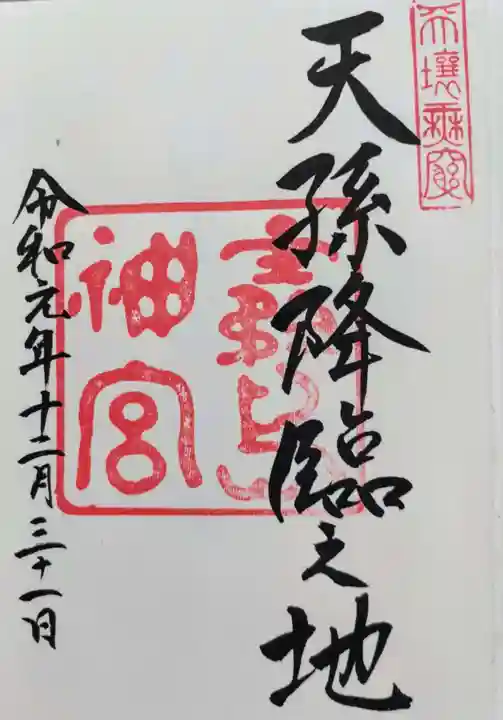 天壌無窮
天孫降臨之地
霧島
神宮
令和元年十二月三十一日